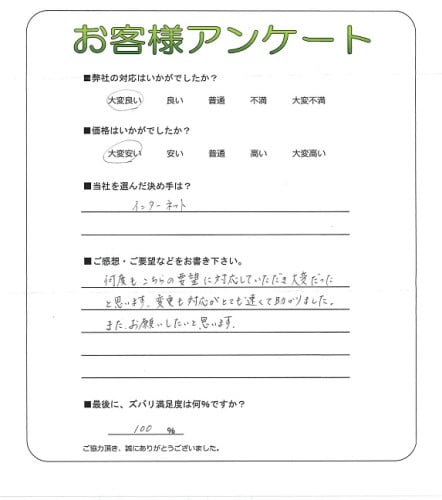 お客様アンケート
■弊社の対応はいかがでしたか？
大変良い 良い 普通 不満 大変不満
■価格はいかがでしたか？
大変安い 安い 普通 高い 大変高い
■当社を選んだ決め手は？
インターネット
■ご感想・ご要望などをお書き下さい。
何度もこちらの要望に対応していただき大変だった
と思います、変更も対応がとても速くて助かりました。
また、お願いしたいと思います。
■最後に、ズバリ満足度は何%ですか？
100 %
ご協力頂き、誠にありがとうございました。